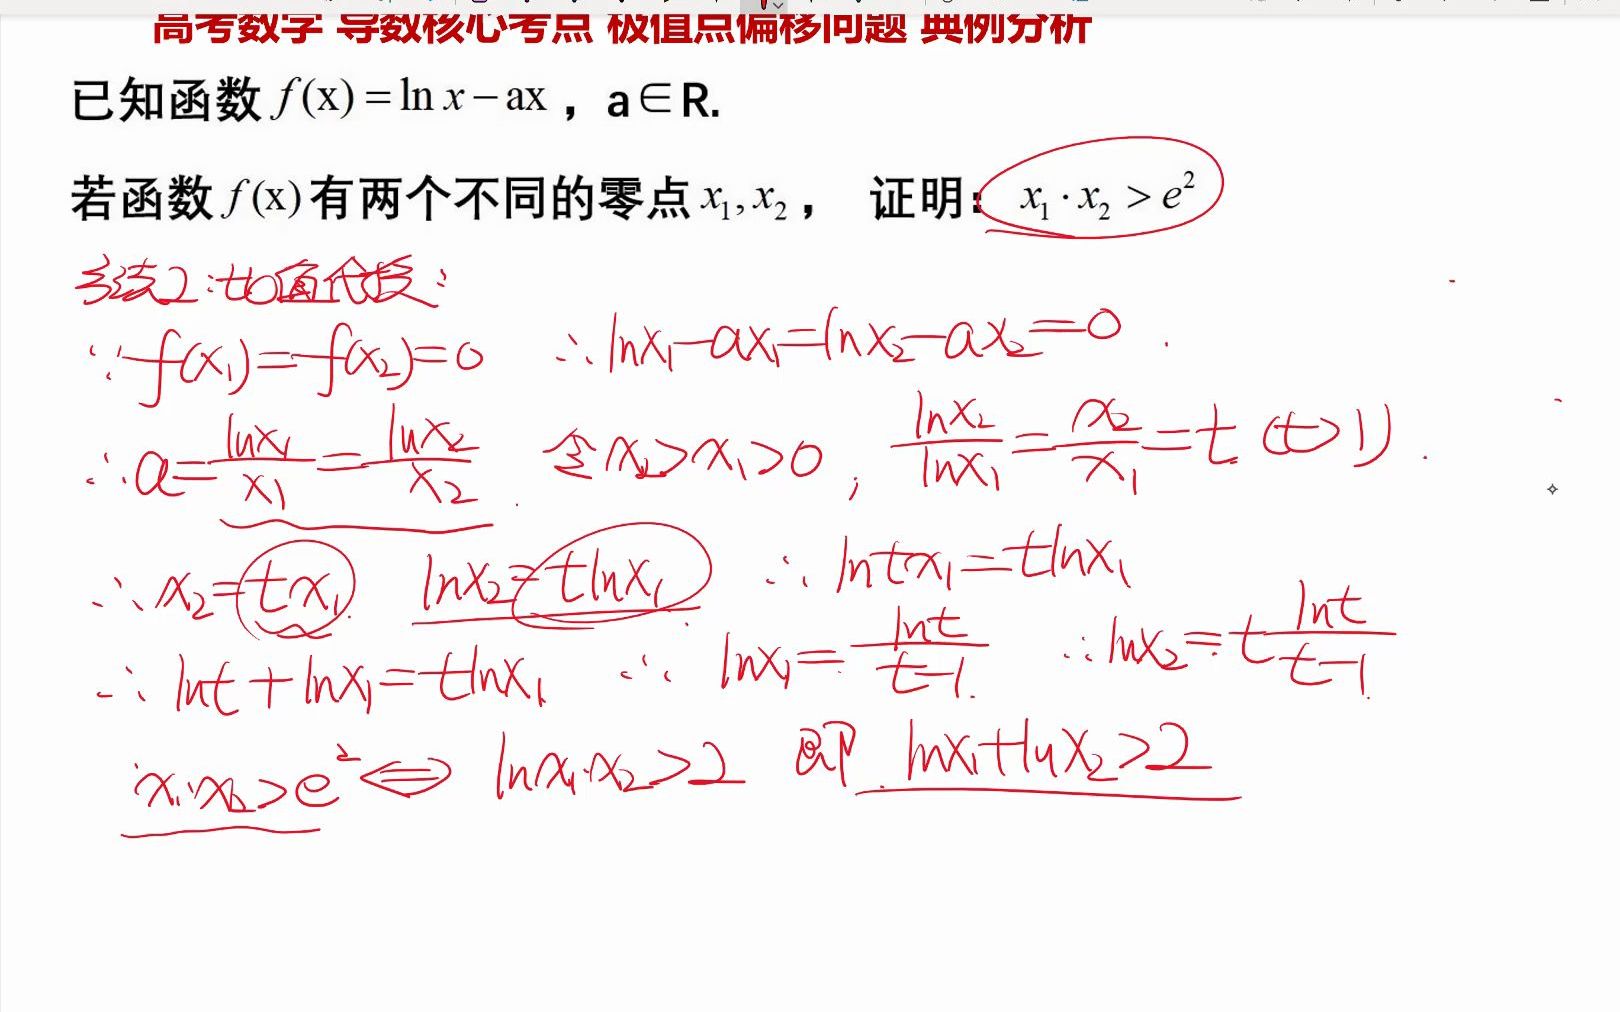 高考数学 导数核心考点 极值点偏移问题 典例分析
已知函数 f(x) = ln x − ax ， a∈R.
若函数 f(x) 有两个不同的零点 x₁, x₂ ， 证明： x₁ · x₂ > e²
方法2:比值代换:
∵ f(x₁)=f(x₂)=0 ∴ lnx₁-ax₁=lnx₂-ax₂=0
∴ a=lnx₁/x₁=lnx₂/x₂ 令x₂>x₁>0, lnx₂/lnx₁=x₂/x₁=t (t>1).
∴ x₂=tx₁ lnx₂=tlnx₁ ∴ lntx₁=tlnx₁
∴ lnt+lnx₁=tlnx₁ ∴ lnx₁=lnt/t-1. ∴ lnx₂=t lnt/t-1.
x₁·x₂>e² ⟺ lnx₁·x₂>2 即 lnx₁+lnx₂>2